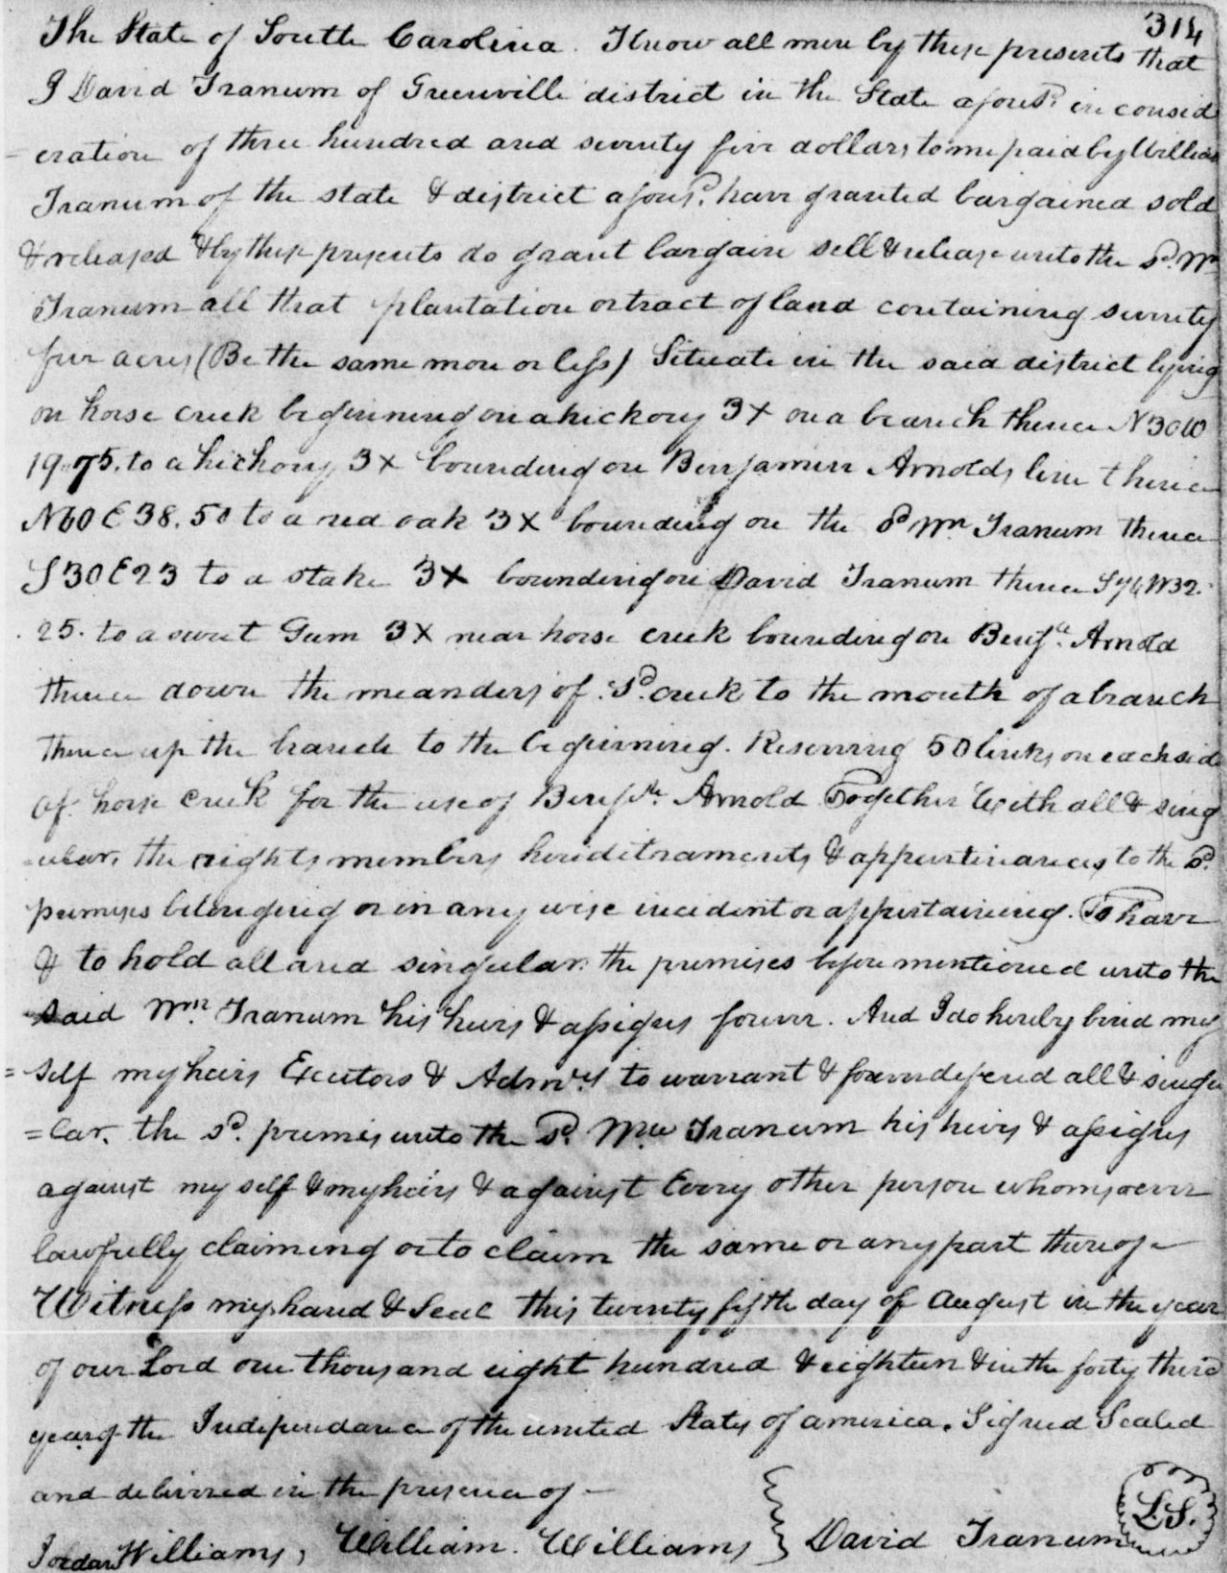 314
The State of South Carolina. Know all men by these presents that
I David Tranum of Greenville district in the State afores.d in consid
eration of three hundred and seventy five dollars to me paid by William
Tranum of the state & district afores.d have granted bargained sold
& released & by these presents do grant bargain sell & release unto the s.d W.m
Tranum all that plantation or tract of land containing seventy
five acres (Be the same more or less) Situate in the said district lying
on horse creek beginning on a hickory 3X on a branch thence N30W
19.75. to a hickory 3X bounding on Benjamin Arnolds line thence
N60E38.50 to a red oak 3X bounding on the s.d W.m Tranum thence
S30E23 to a stake 3X bounding on David Tranum thence W32.
25. to a sweet Gum 3X near horse creek bounding on Benj.a Arnold
thence down the meanders of s.d creek to the mouth of a branch
thence up the branch to the beginning. Reserving 50 links on each side
of horse creek for the use of Arnold Together with all & sing
ular, the rights members hereditraments & appurtinances to the s.d
premises belonging or in any wise incident or appertaining. To have
& to hold all and singular. the premises before mentioned unto the
said W.m Tranum his heirs & assigns forever. And I do hereby bind my
= self my heirs Exectors & Adm.rs to warrant & forever defend all & singu
=lar. the s.d premises unto the s.d W.m Tranum his heirs & assigns
against my self & my heirs & against Every other person whomsoever
lawfully claiming or to claim the same or any part thereof
Witness my hand & Seal this twenty fifth day of August in the year
of our Lord one thousand eight hundred & eighteen & in the forty third
year of the Independance of the united States of america. Signed Sealed
and delivered in the presence of
Jordan Williams, William. Williams } David Tranum L.S.